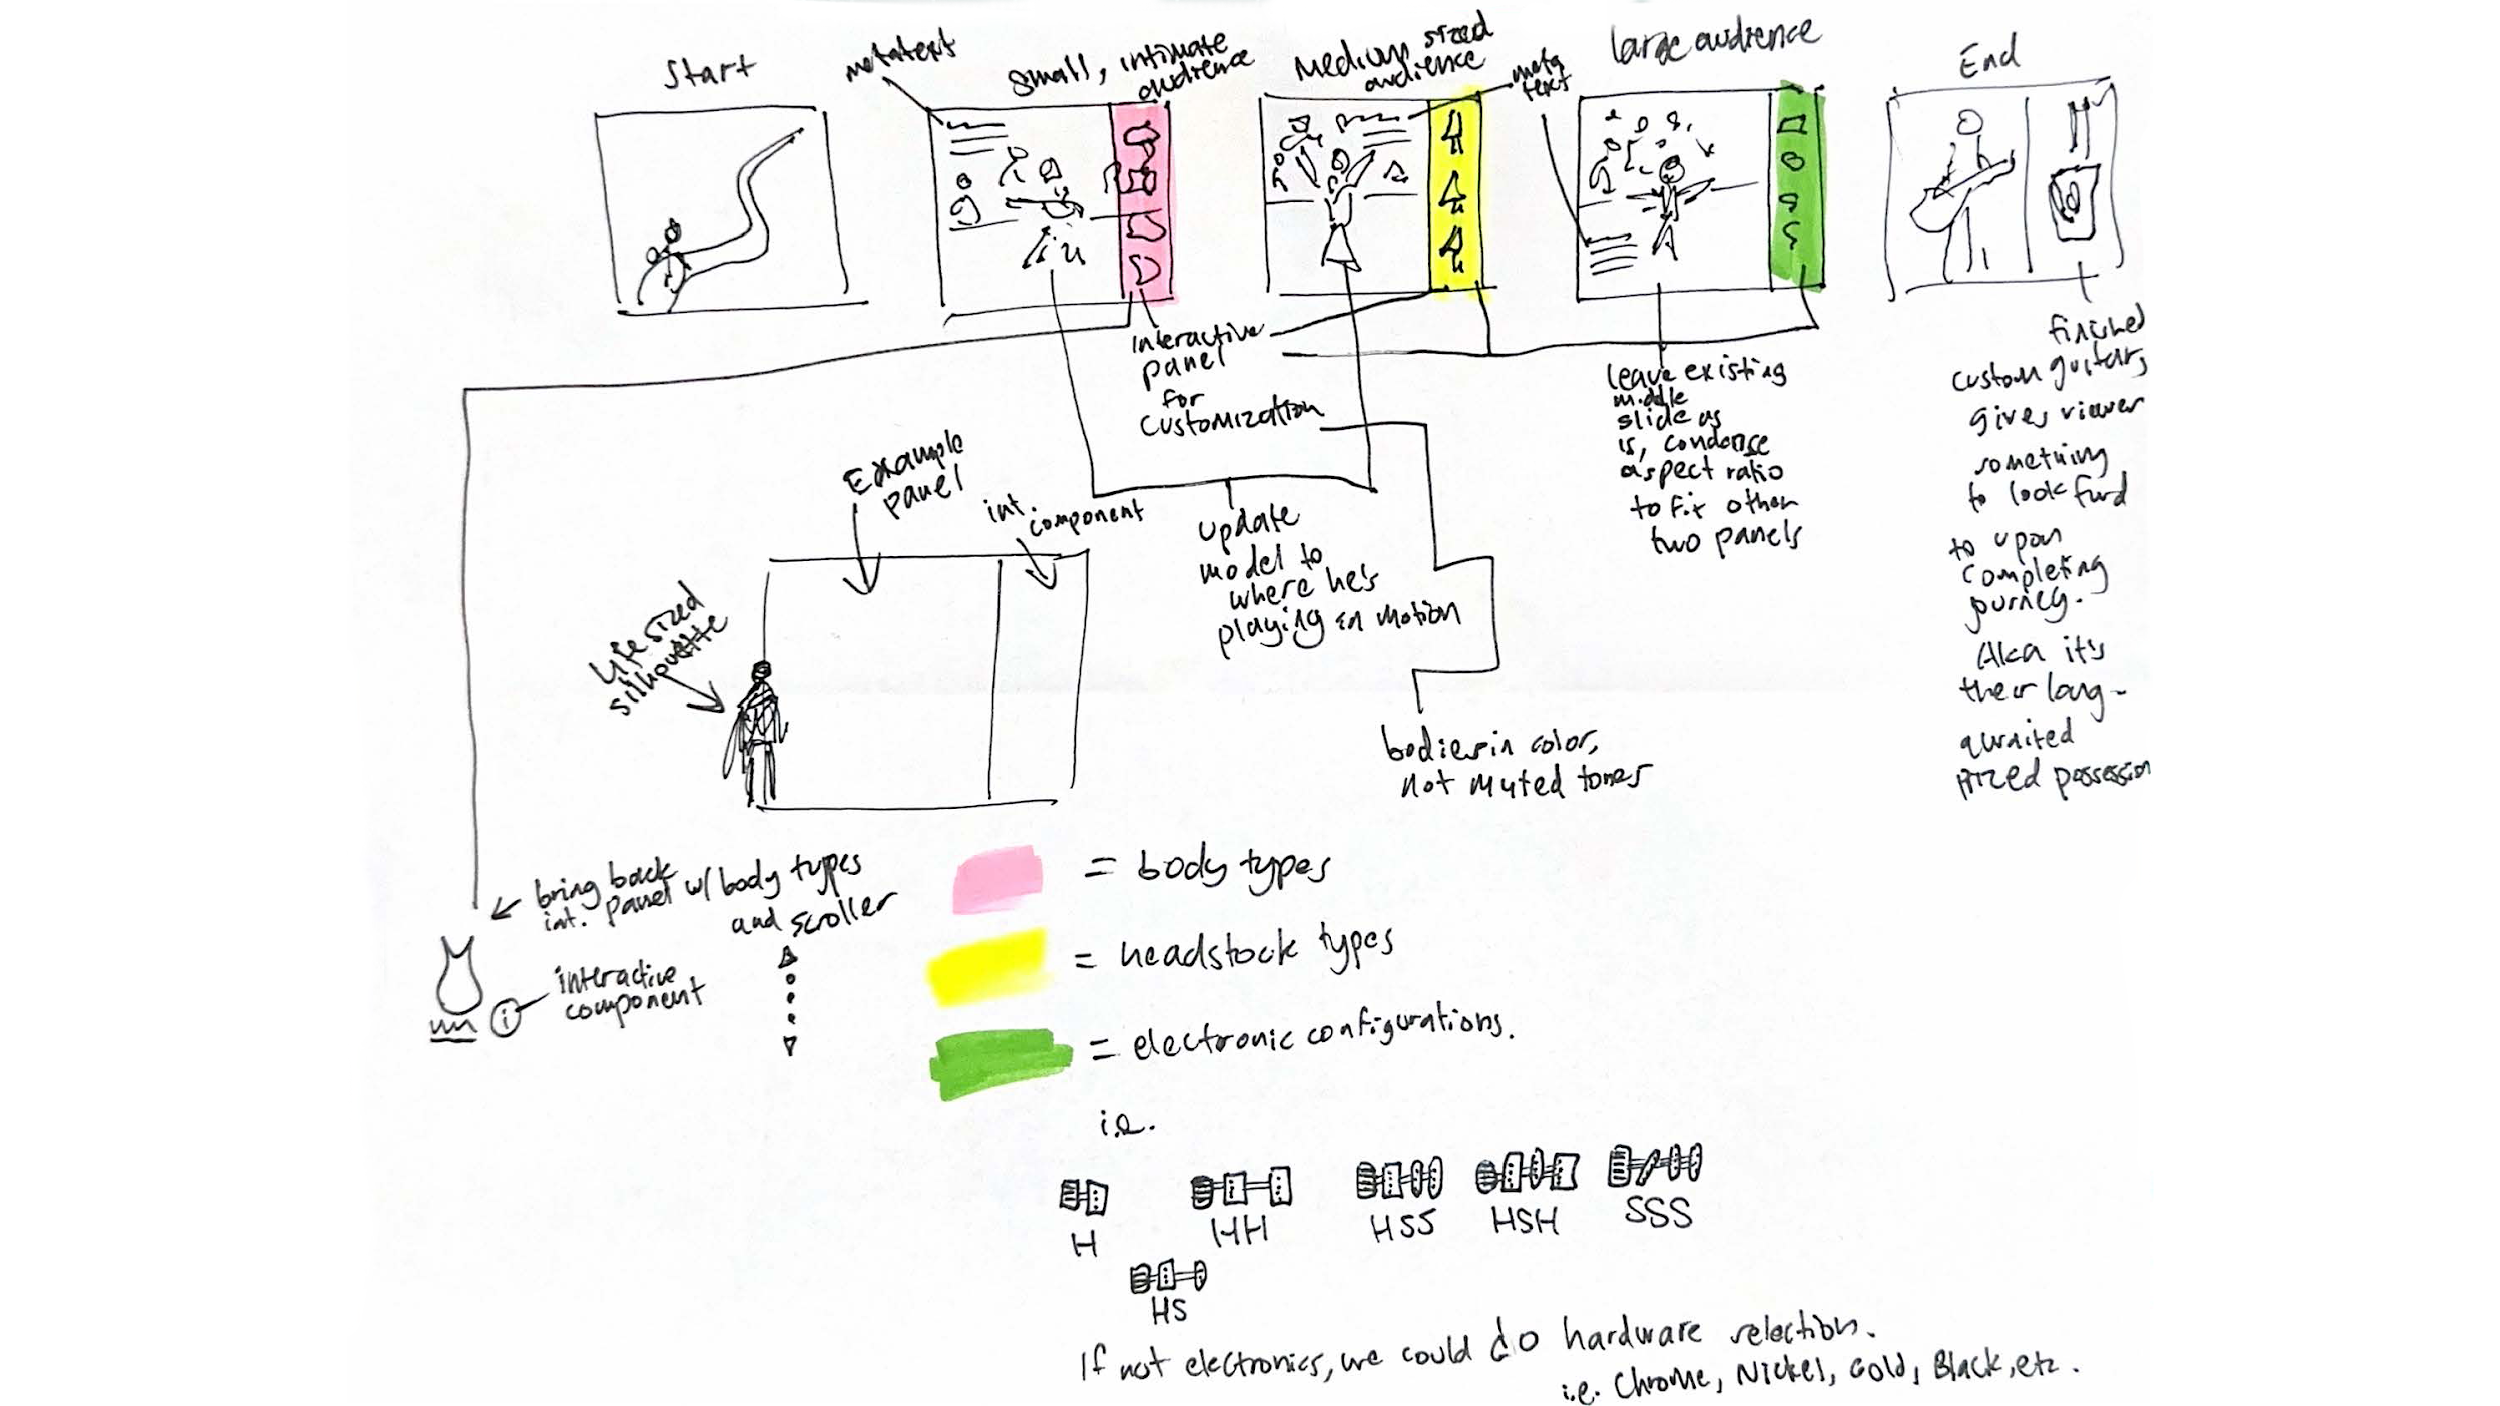 Start
metatext
Small, intimate
audience
Medium sized
audience
meta
text
large audience
End
interactive
panel
for
customization
leave existing
middle
slide as
is, condense
aspect ratio
to fix other
two panels
finished
custom guitar,
gives viewer
something
to look fwrd
to upon
completing
journey.
Aka it's
their long-
awaited
prized possession
Example
panel
int.
component
update
model to
where he's
playing in motion
life sized
silhouette
bodies in color,
not muted tones
bring back
int. panel w/ body types
and scroller
interactive
component
i
= body types
= headstock types
= electronic configurations.
i.e.
H
HH
HSS
HSH
SSS
HS
If not electronics, we could do hardware selection.
i.e. Chrome, Nickel, Gold, Black, etc.